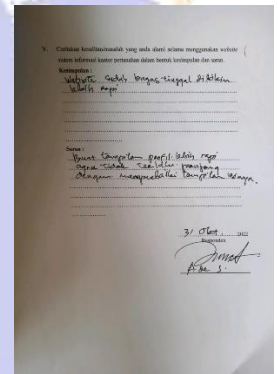 V. Ceritakan kesulitan/masalah yang anda alami selama menggunakan website
sistem informasi kantor pertanahan dalam bentuk kesimpulan dan saran.
Kesimpulan :
Website sudah bagus tinggal dibikin
lebih rapi
Saran :
Buat tampilan profil lebih rapi
agar tidak terlihat
dengan memperbaiki tampilan
31 Okt 2022
Responden